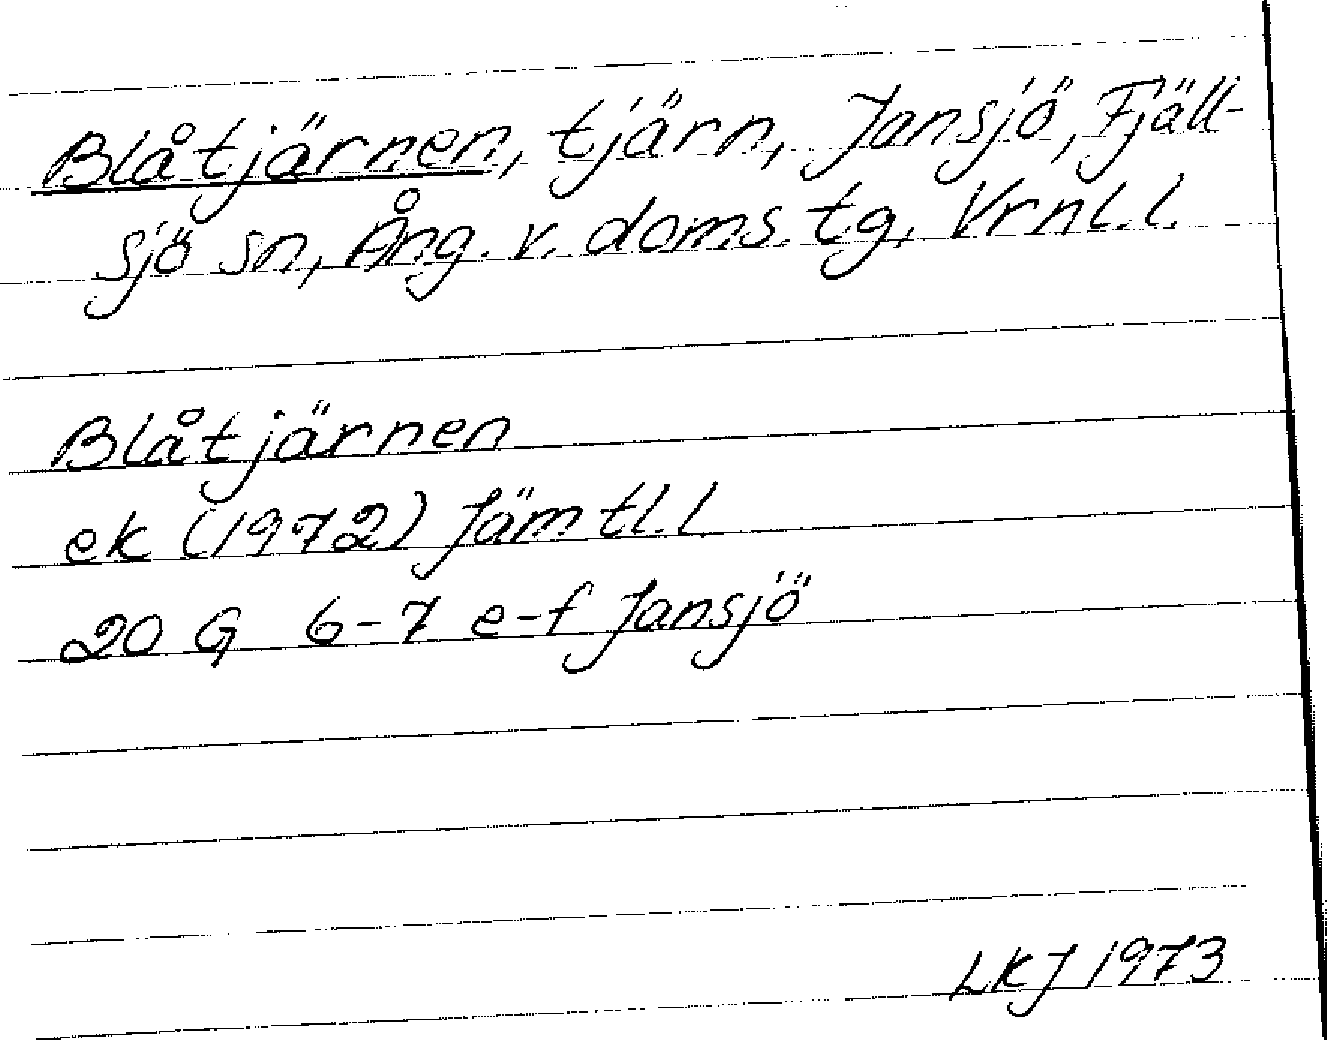 Blåtjärnen, tjärn, Jansjö, Fjäll-
sjö sn, Ång. v. doms. tg, Vrnl.l.
Blåtjärnen
ek (1972) Jämtl.l
20 G 6-7 e-f Jansjö
LKJ 1973